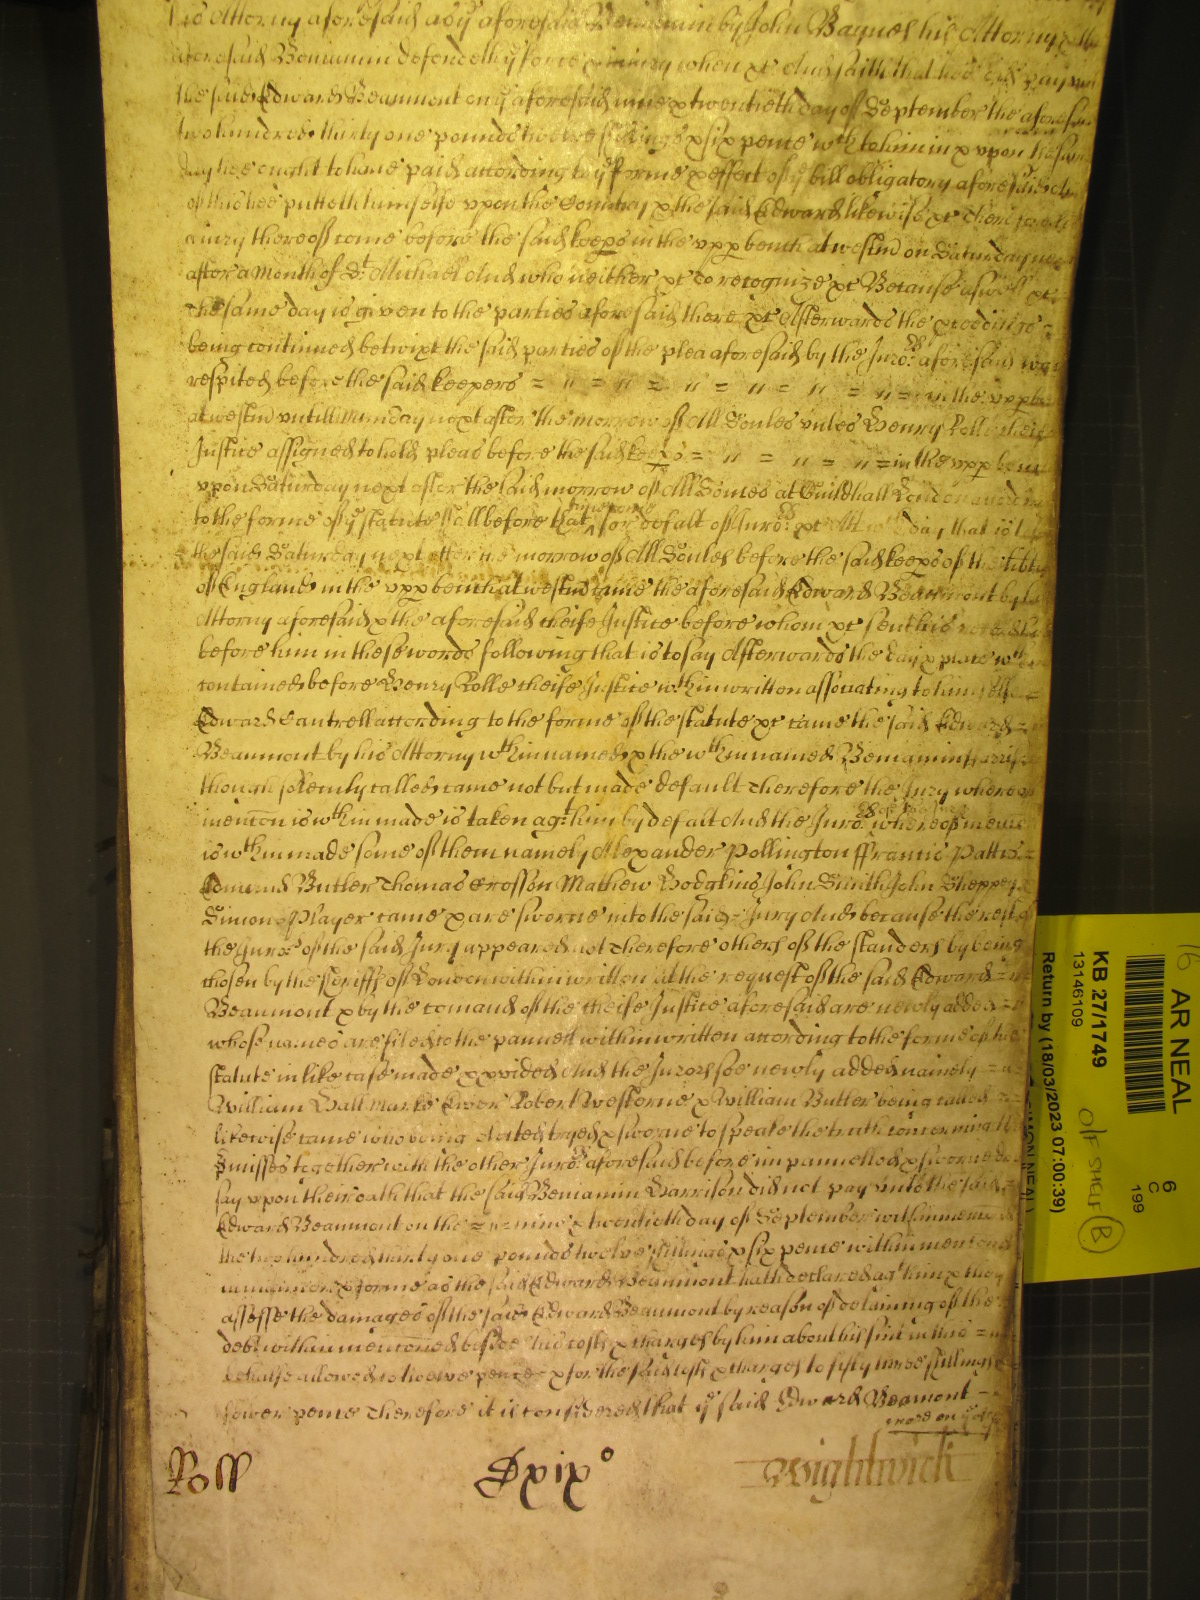 his Attorny aforesaid & ye aforesaid Beniamin by John Baynes his Attorny
aforesaid Beniamin defendeth ye force & iniury when &c And saith that hee did pay unto
the said Edward Beaumont on ye aforesaid nine & twentieth day of September the aforesaid
two hundred thirty one pounds twelve shillings & six pence wch to him in & upon the same
day hee ought to have paid according to ye forme & effect of ye bill obligatory aforesaid And
of this hee putteth himselfe upon the Country & the said Edward likewise &c Therefore let
a iury thereof come before the said keeps in the upp bench at westm on Saturday next
after a Month of St Michael And who neither &c to recognize &c Because aswell &c
The same day is given to the parties aforesaid there &c Afterwards the pceedings =
being continued betwixt the said parties of the plea aforesaid by the Juro: aforesaid was
respited before the said keepers = " = " = " = " = " = " = in the upp bench
at westm untill Munday next after the morrow of All Soules unles Henry Rolle cheife
Justice assigned to hold pleas before the said keeps = " = " = " = in the upp bench
upon Saturday next after the said morrow of All Soules at Guildhall London according
to the forme of ye statute shall before that time come for defalt of Juro: &c At wch day that is to say
the said Saturday next after the morrow of All Soules before the said keeps of the libty
of England in the upp bench at westm came the aforesaid Edward Beaumont by his
Attorny aforesaid & the aforesaid cheife Justice before whom &c sent his record had
before him in these words following that is to say Afterwards the day & place wthin
contained before Henry Rolle cheife Justice wthin written associating to himselfe =
Edward Cantrell according to the forme of the statute &c came the said Edward =
Beaumont by his Attorny wthin named & the wthin named Beniamin Harrison
though solemly called came not but made default Therefore the Jury whereof
mencon is wthin made is taken agt him by default And the Juro: whereof mencon
is wthin made some of them namely Alexander Pollington ffrancis Pattis =
Edmund Butler Thomas Crosson Mathew Hodgkins John Smith John Sheppey
Simon Player came & are sworne into the said = Jury And because the rest of
the Juro: of the said Jury appeared not Therefore others of the standers by being
chosen by the sheriffs of London within written at the request of the said Edward =
Beaumont & by the comand of the cheife Justice aforesaid are newly added =
whose names are filed to the pannell within written according to the forme of the
statute in like case made & pvided And the Jurors soe newly added namely =
William Hall Marke Ewer Robert Westerne & William Butler being called =
likewise came who being elected tryed & sworne to speake the truth concerning the
pmisses together with the other Juro: aforesaid before impannelled & sworne doe
say upon their oath that the said Beniamin Harrison did not pay unto the said =
Edward Beaumont on the = " = nine & twentieth day of September within menconed
the two hundred thirty one pounds twelve shillings & six pence within menconed
in manner & forme as the said Edward Beaumont hath declared agt him & they
assesse the damages of the said Edward Beaumont by reason of detaining of the
debt within menconed beside his costs & charges by him about his suit in this =
behalfe allowed to twelve pence & for the said costs & charges to fifty three shillings
fower pence Therefore it is considered that ye said Edward Beamont =
more on ye other
Roll
Dxixo
Wightwick
16 AR NEAL
KB 27/1749
13146109
Return by (18/03/2023 07:00:39)
6
C
199
O/F SHELF
B
(SIMON NEAL)